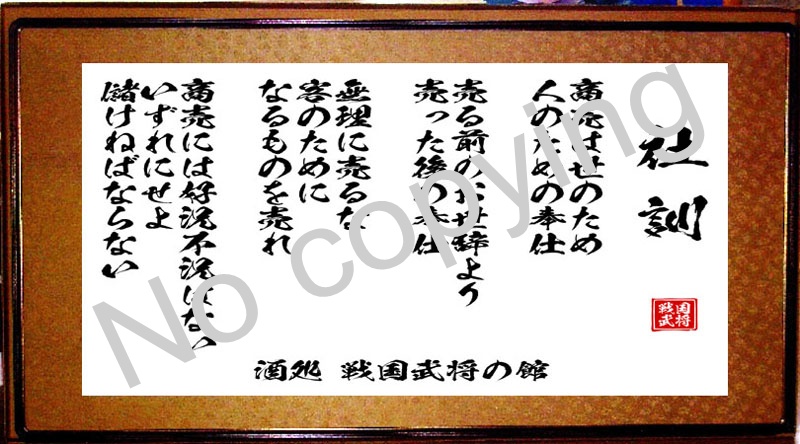 社訓
商売は世のため
人のための奉仕
売る前のお世辞より
売った後の奉仕
無理に売るな
客のために
なるものを売れ
商売には好況不況はない
いずれにせよ
儲けねばならない
戦国武将
酒処 戦国武将の館
No copying